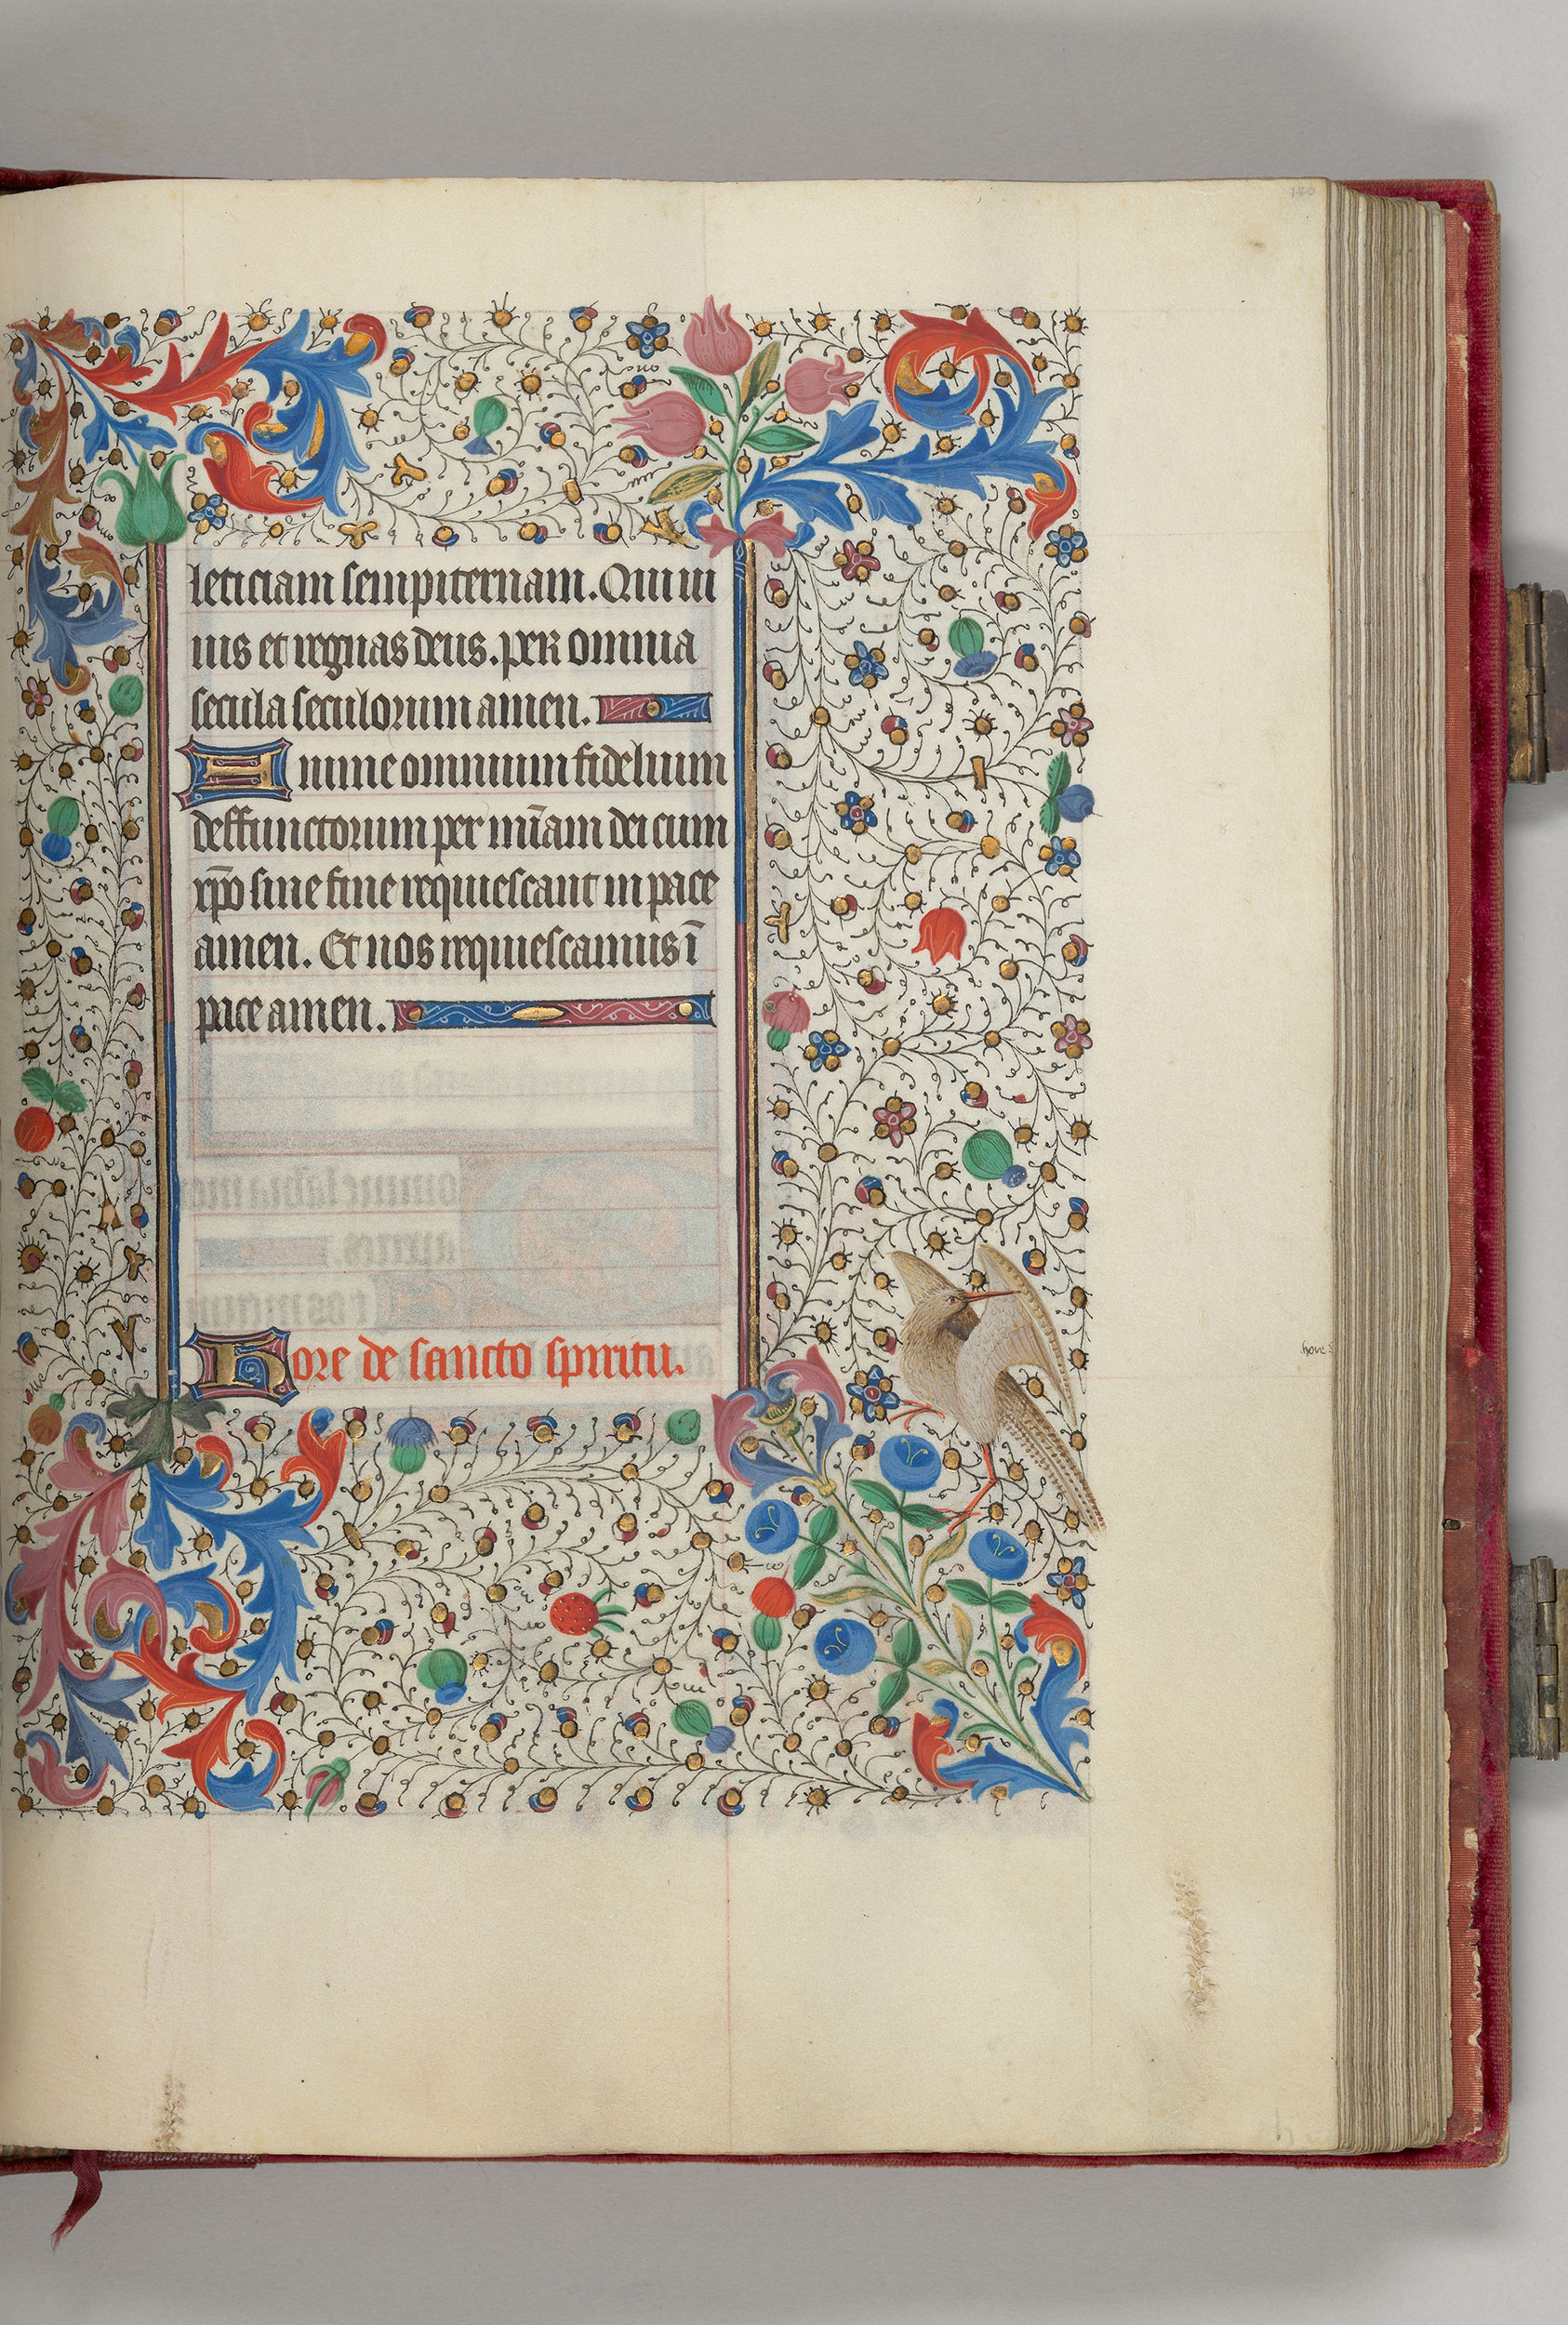 140
leticiam sempiternam. Qui ui
uis et regnas deus. per omnia
secula seculorum amen.
Anime omnium fidelium
deffunctorum per mīam dei cum
xpō sine fine requiescant in pace
amen. Et nos requiescamus ī
pace amen.
Hore de sancto spiritu.